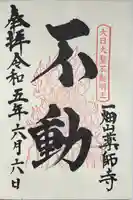 奉拝令和五年六月六日
不動
大日大聖不動明王
一畑山薬師寺